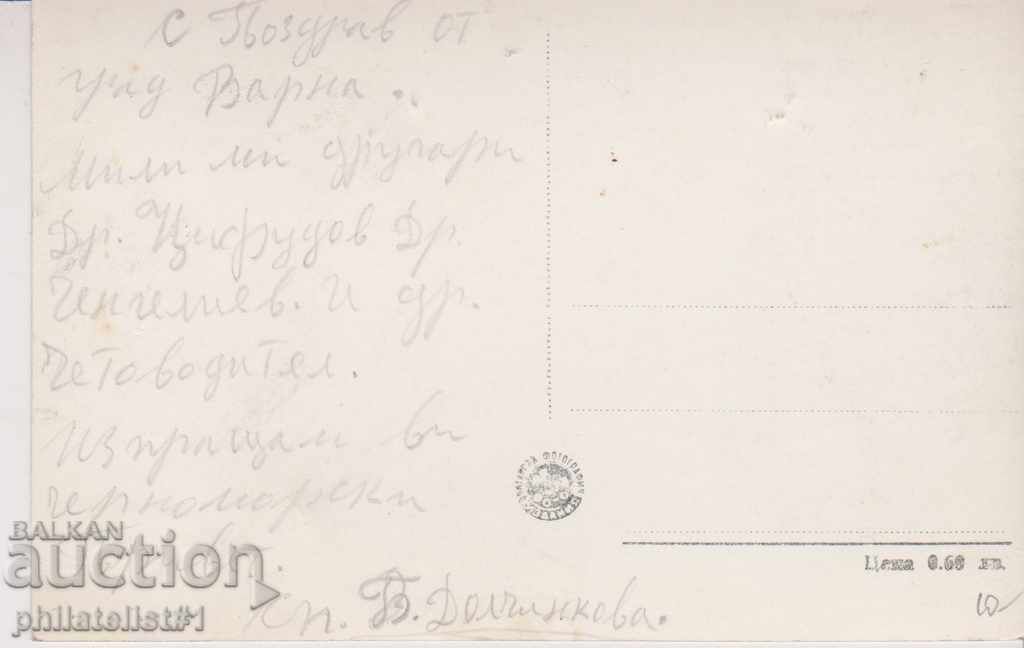 с Поздрав от
град Варна.
Мили ми другари
Др. Цифудов Др.
Ченгелиев. И др.
Четоводител.
Изпращам ви
черноморски
BALKAN
auction
philatelist#1
Б. Долчинкова.
БЪЛГАРСКА ФОТОГРАФИЯ
Цена 0.60 лв.
10